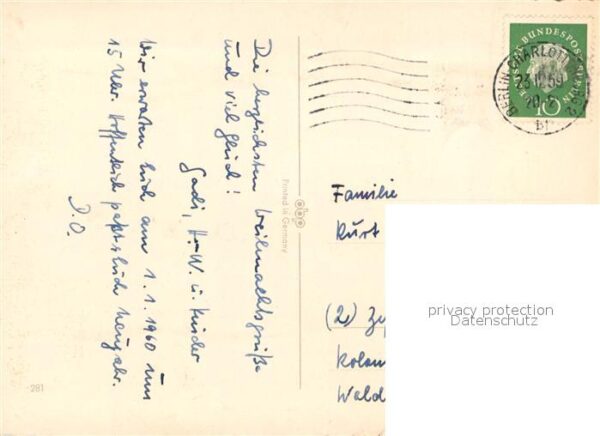 Die herzlichsten Weihnachtsgrüße
und viel Glück!
Gadi, H.-W. u. Kinder
Wir erwarten Euch am 1.1.1960 um
15 Uhr. Hoffentlich paßt's Euch Neujahr.
D.O.
Printed in Germany
281
DEUTSCHE BUNDESPOST BERLIN
10
BERLIN-CHARLOTTENBURG 2
23.12.59
bi
Familie
Kurt
(2)
Wald
privacy protection
Datenschutz